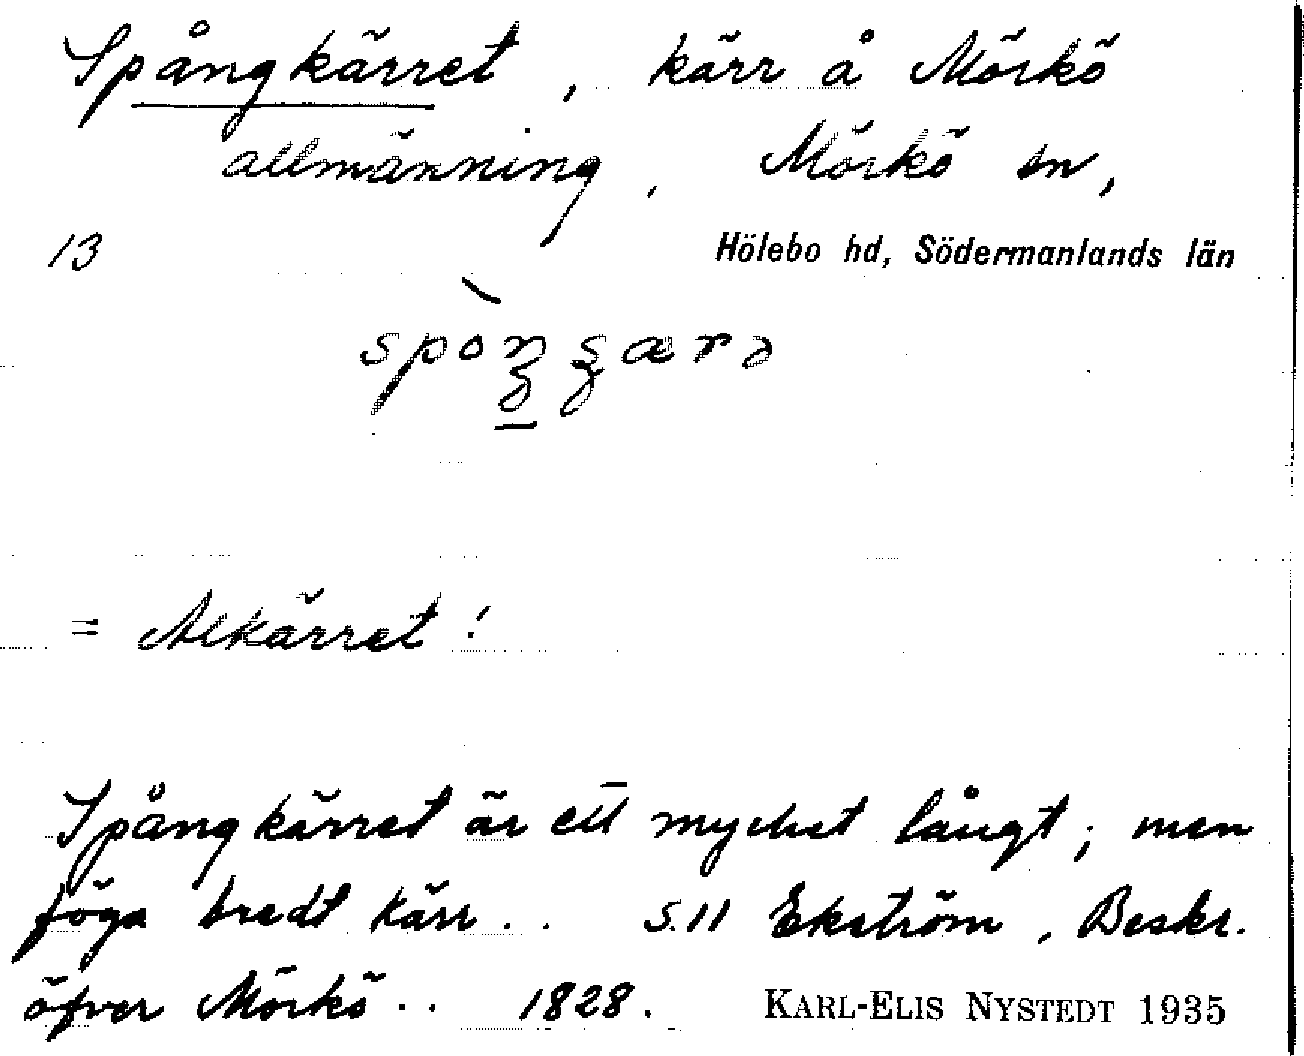 Spångkärret, kärr å Mörkö
allmänning, Mörkö sn,
13 Hölebo hd, Södermanlands län
= Alkärret!
Spångkärret är ett mycket långt; men
föga bredt kärr.. S.11 Ekström, Beskr.
öfver Mörkö.. 1828. KARL-ELIS NYSTEDT 1935